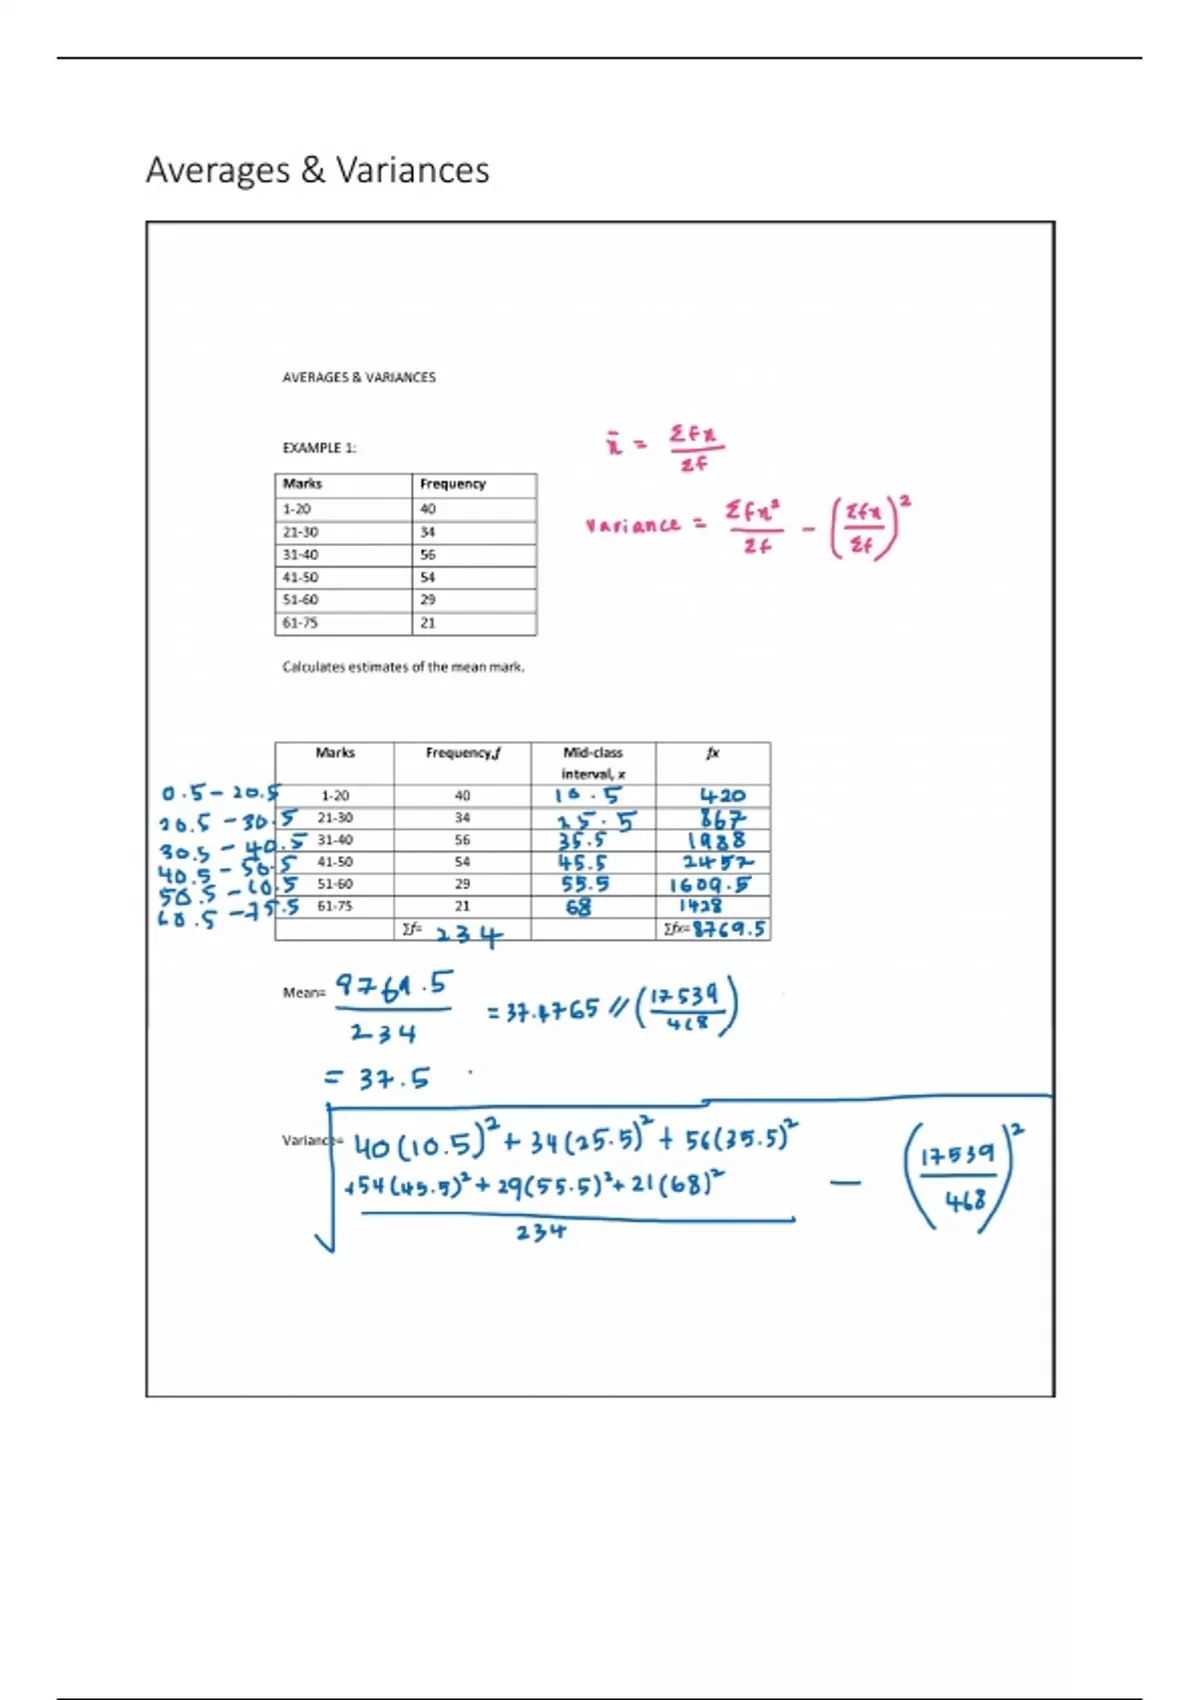 Averages & Variances
AVERAGES & VARIANCES
EXAMPLE 1:
x̄ = Σfx / Σf
Marks Frequency
1-20 40
21-30 34
31-40 56
41-50 54
51-60 29
61-75 21
variance = Σfx² / Σf − (Σfx / Σf)²
Calculates estimates of the mean mark.
Marks Frequency,f Mid-class interval, x fx
0.5 – 20.5 1-20 40 10.5 420
20.5 – 30.5 21-30 34 25.5 867
30.5 – 40.5 31-40 56 35.5 1988
40.5 – 50.5 41-50 54 45.5 2457
50.5 – 60.5 51-60 29 55.5 1609.5
60.5 – 75.5 61-75 21 68 1428
Σf= 234 Σfx= 8769.5
Mean= 8769.5 / 234 = 37.4765 // (17539 / 468)
= 37.5
Variance= √ 40(10.5)² + 34(25.5)² + 56(35.5)²
+54(45.5)² + 29(55.5)² + 21(68)² / 234 − (17539 / 468)²